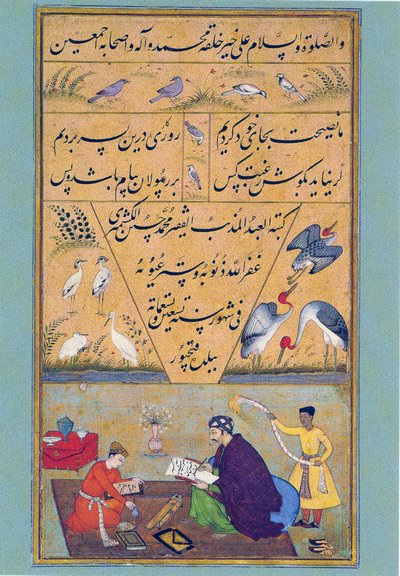 والصلوة والسلام علی خیر خلقه محمد وآله واصحابه اجمعین
ما نصیحت بجای خود کردیم
درین بسر بردیم
گر نیاید بگوش رغبت کس
بر رسولان پیام باشد و بس
کتبه العبد المذنب الفقیر محمد حسین الکشمیری
غفر الله ذنوبه وستر عیوبه
فی شهور سنة تسعین وتسعمائة
فتحپور